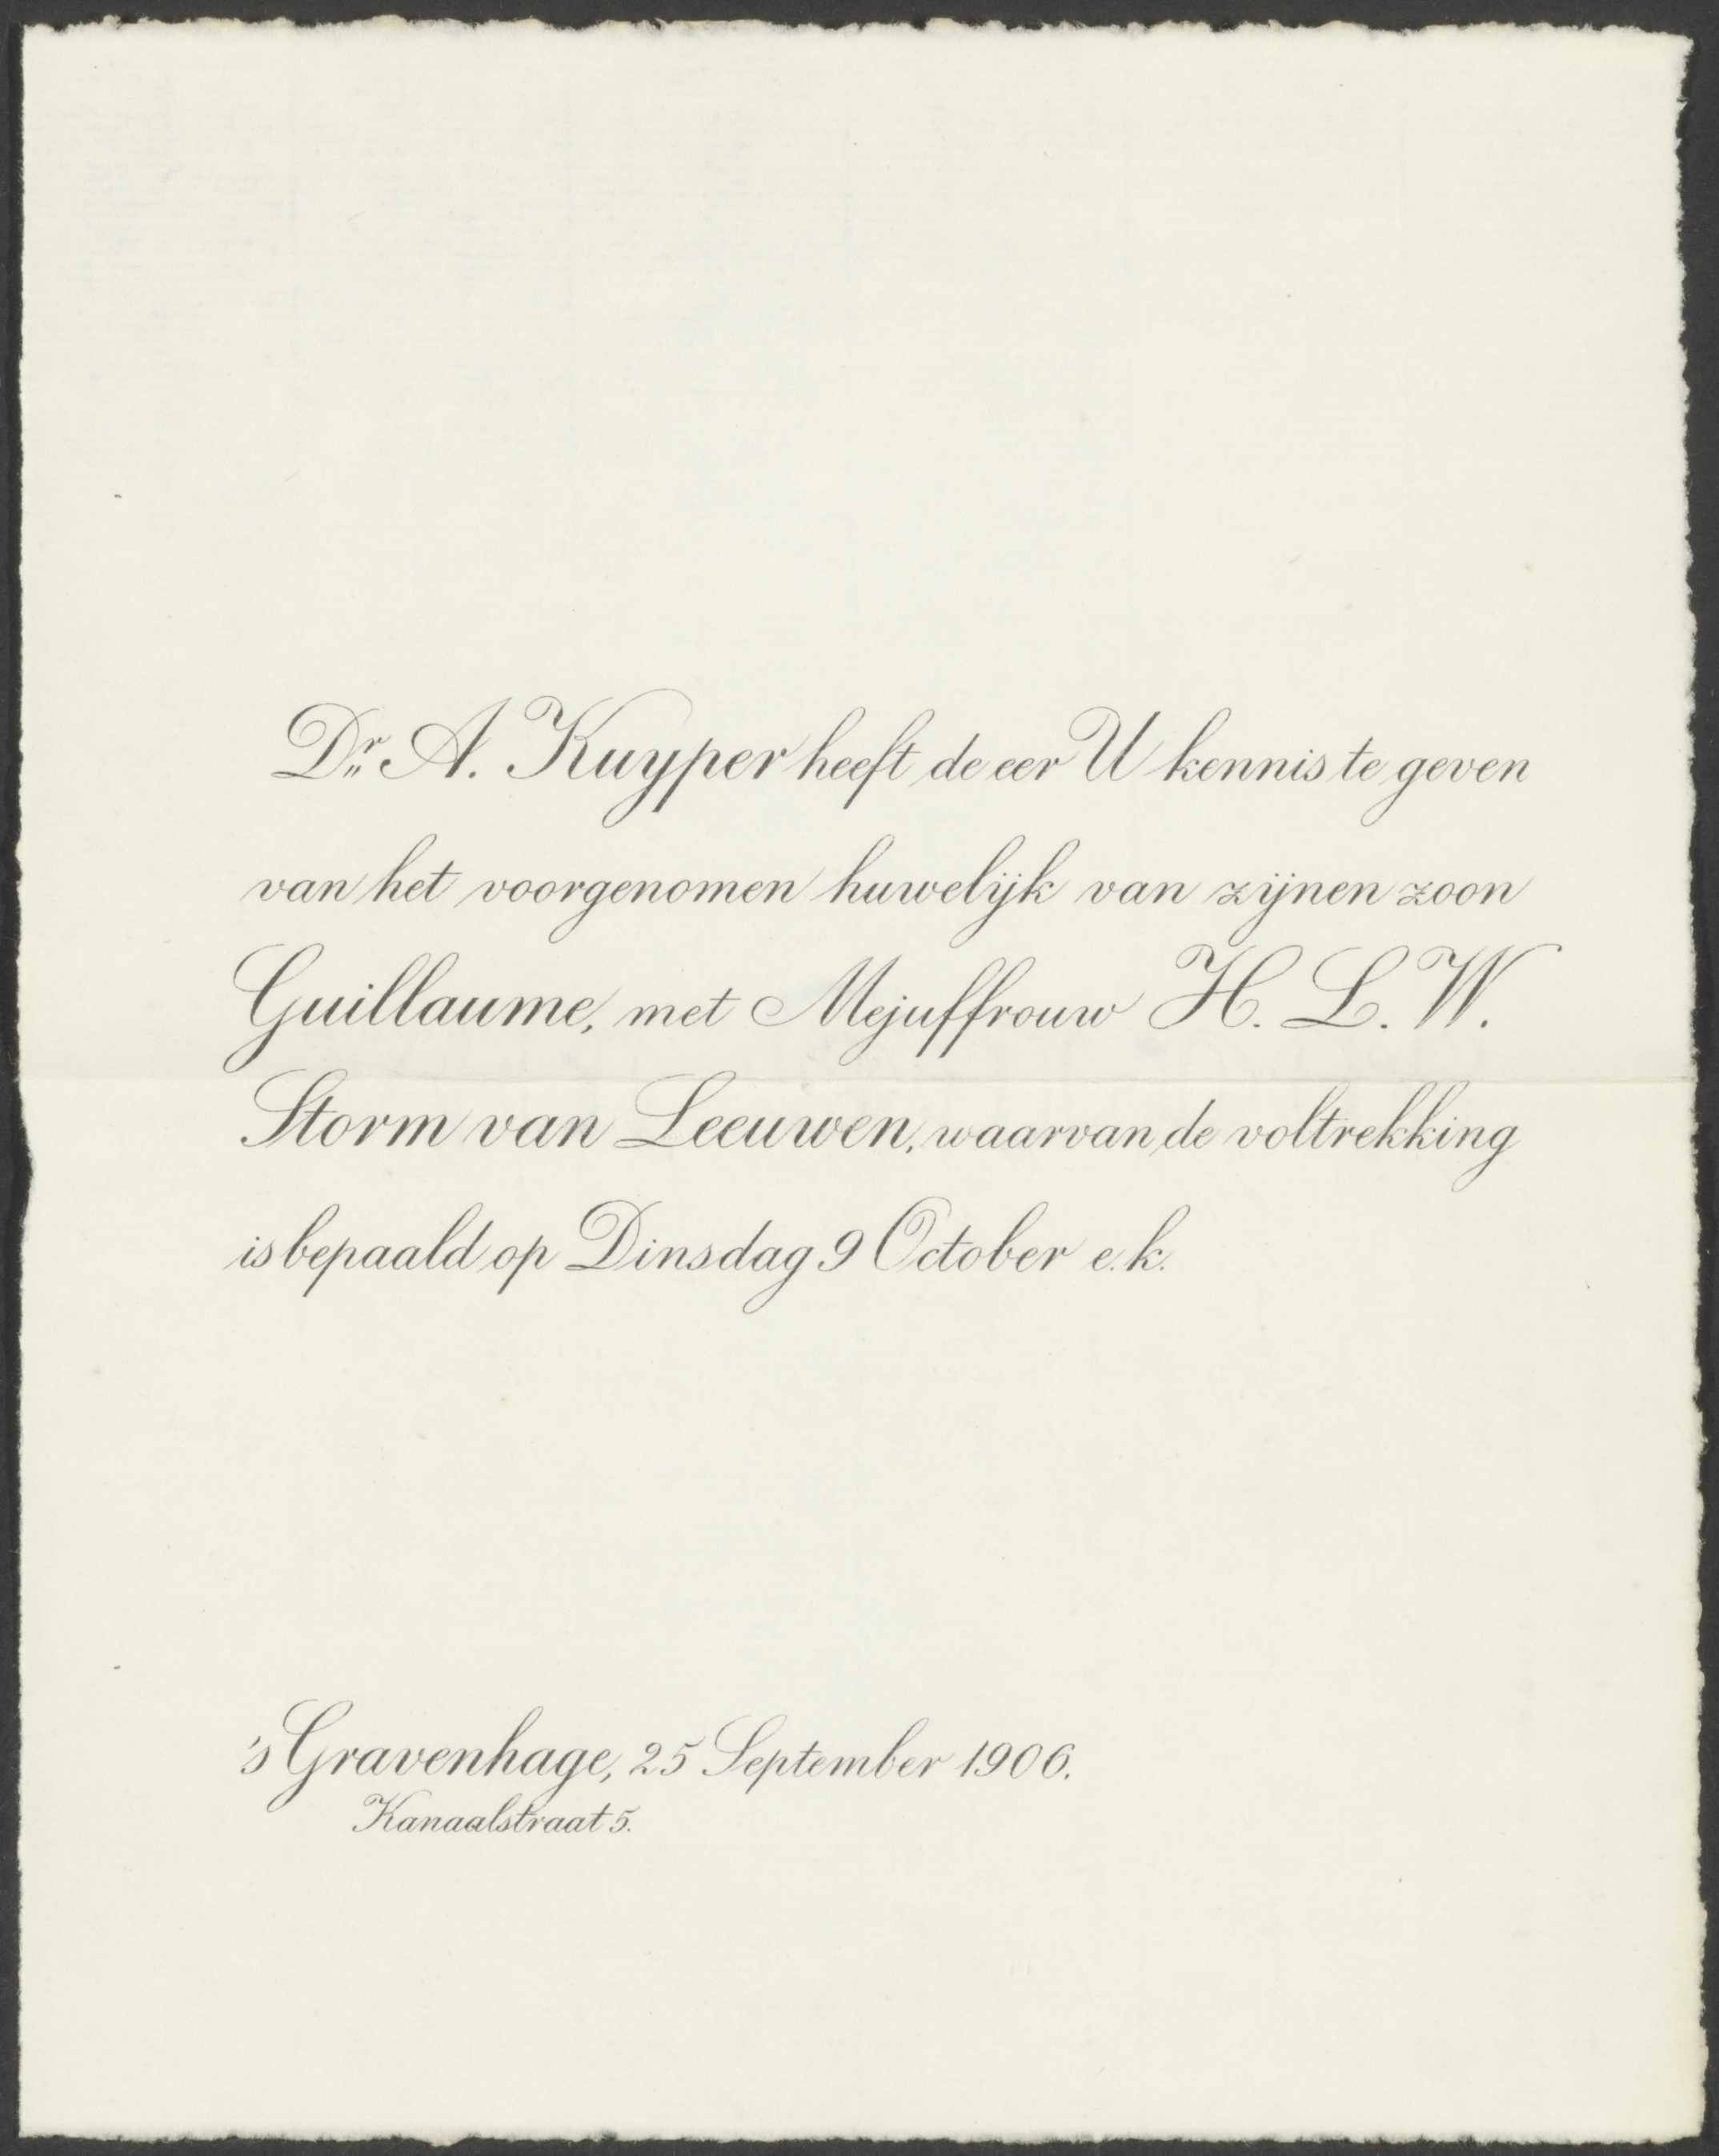 Dr. A. Kuyper heeft de eer U kennis te geven
van het voorgenomen huwelijk van zijnen zoon
Guillaume, met Mejuffrouw H. L. W.
Storm van Leeuwen, waarvan de voltrekking
is bepaald op Dinsdag 9 October e.k.
's Gravenhage, 25 September 1906.
Kanaalstraat 5.